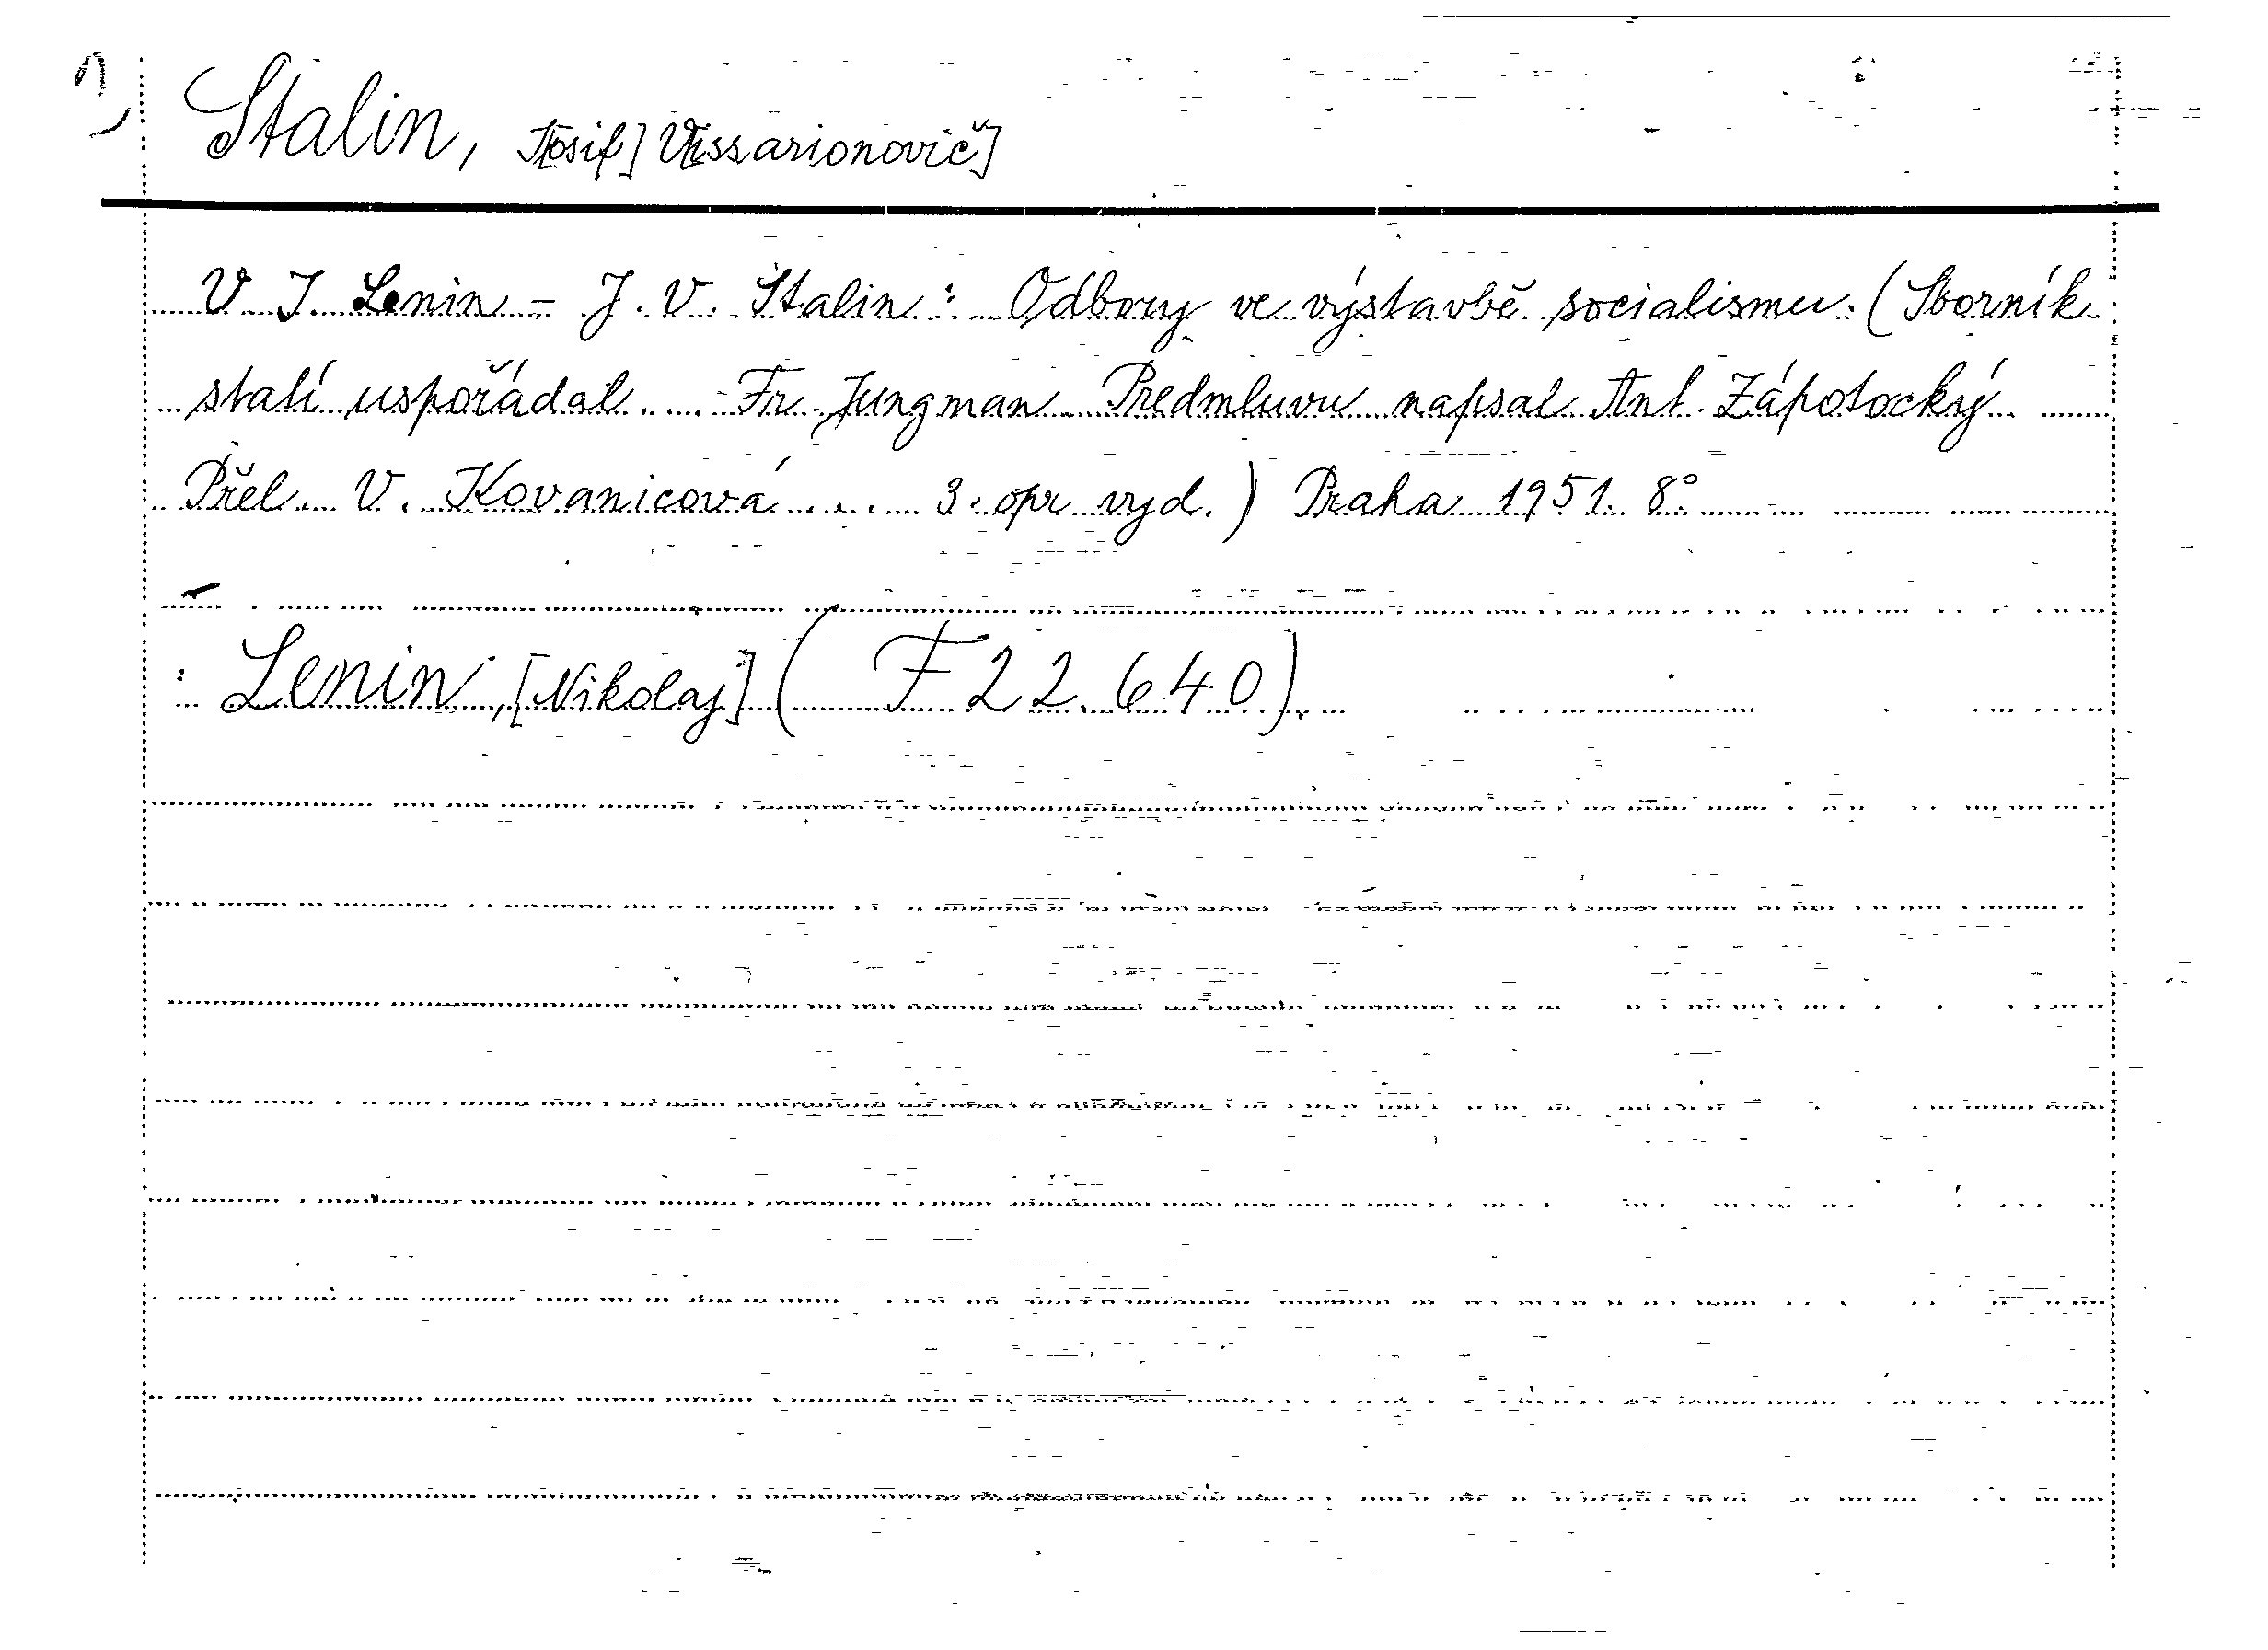 Stalin, J[osif] V[issarionovič]
V. I. Lenin - J. V. Stalin: Odbory ve výstavbě socialismu. (Sborník
statí uspořádal .... Fr. Jungman. Předmluvu napsal Ant. Zápotocký.
Přel. V. Kovanicová .... 3. opr. vyd.) Praha 1951. 8°
: Lenin, [Nikolaj] (F 22.640).